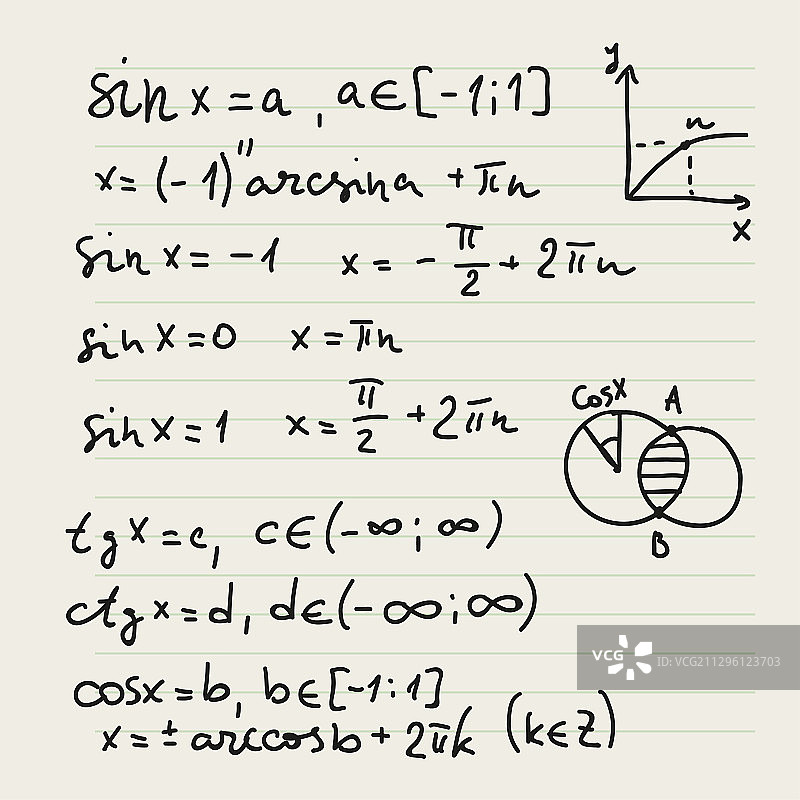 sin x = a , a∈[-1;1]
x = (-1)ⁿ arcsin a + πn
sin x = -1 x = - π/2 + 2πn
sin x = 0 x = πn
sin x = 1 x = π/2 + 2πn
tg x = c, c∈(-∞;∞)
ctg x = d, d∈(-∞;∞)
cosx = b, b∈[-1;1]
x = ± arccosb + 2πk (k∈Z)
y
n
x
cosx A
B
VCG
ID: VCG211296123703